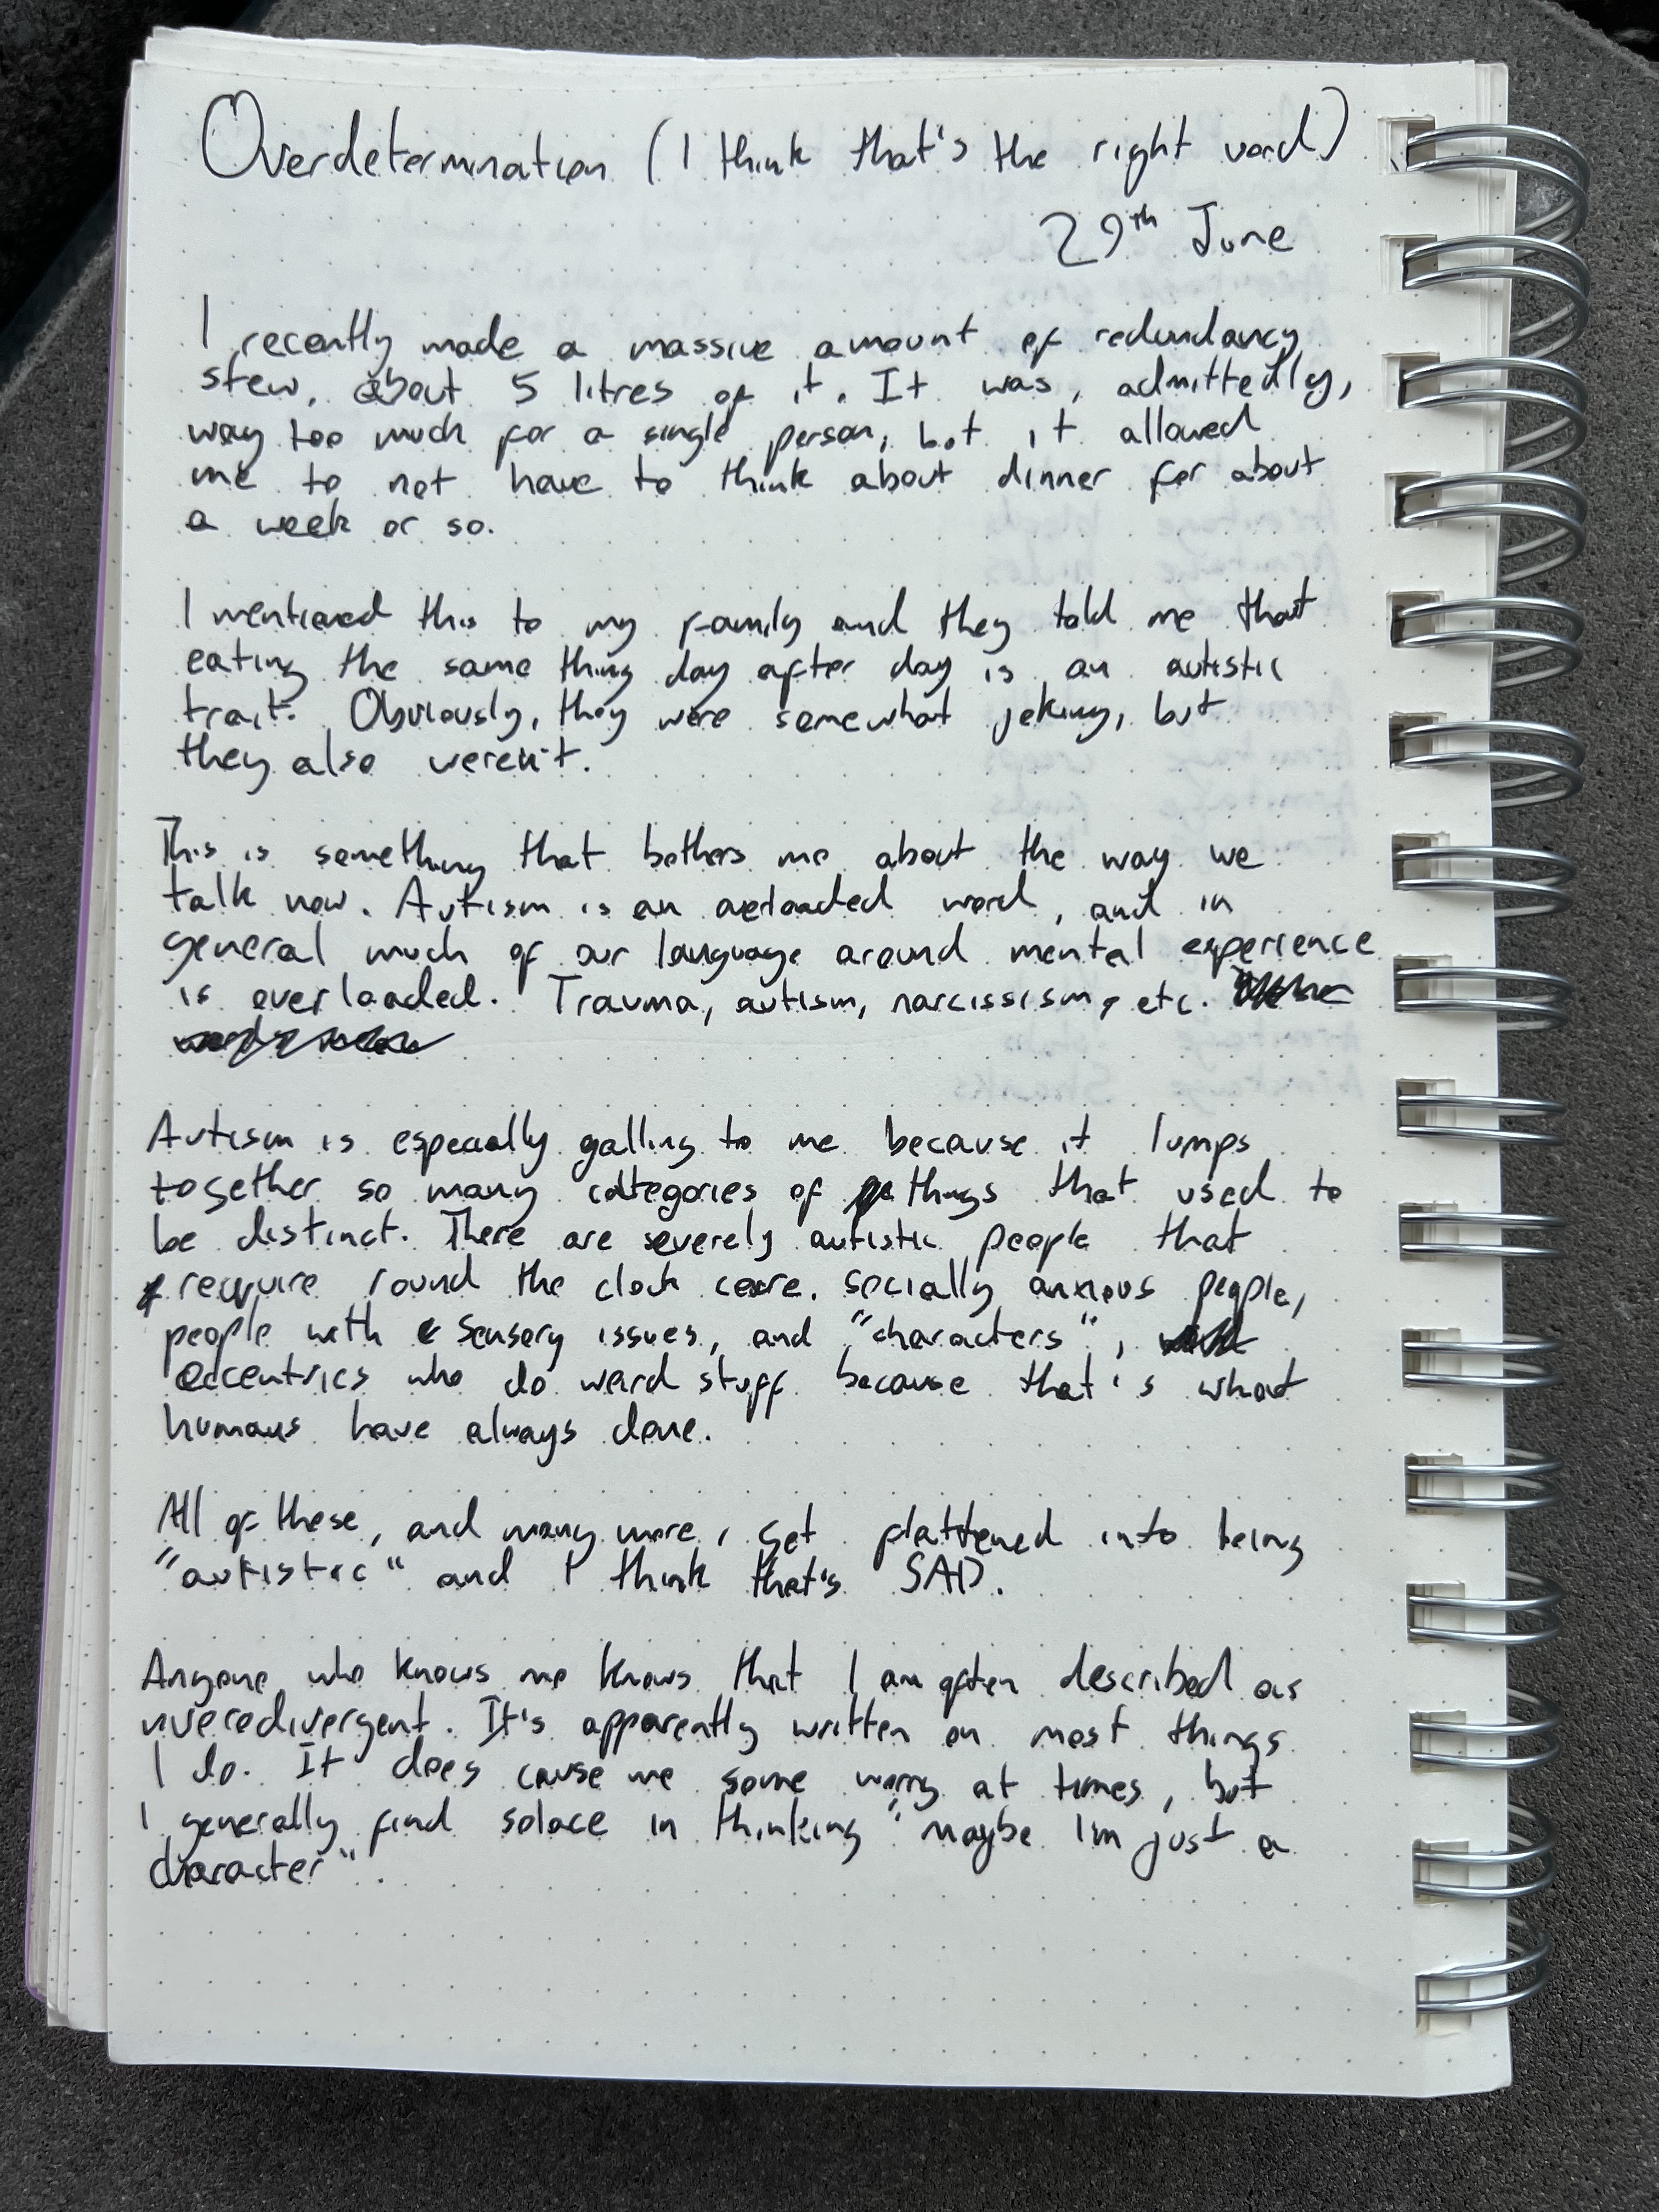 Overdetermination (I think that's the right word)
29th June
I recently made a massive amount of redundancy
stew, about 5 litres of it. It was, admittedly,
way too much for a single person, but it allowed
me to not have to think about dinner for about
a week or so.
I mentioned this to my family and they told me that
eating the same thing day after day is an autistic
trait. Obviously, they were somewhat joking, but
they also weren't.
This is something that bothers me about the way we
talk now. Autism is an overloaded word, and in
general much of our language around mental experience
is overloaded. Trauma, autism, narcissism, etc.
Autism is especially galling to me because it lumps
together so many categories of things that used to
be distinct. There are severely autistic people that
require round the clock care, socially anxious people,
people with sensory issues, and "characters",
eccentrics who do weird stuff because that's what
humans have always done.
All of these, and many more, get flattened into being
"autistic" and I think that's SAD.
Anyone who knows me knows that I am often described as
nueredivergent. It's apparently written on most things
I do. It does cause me some worry at times, but
I generally find solace in thinking "maybe I'm just a
character".